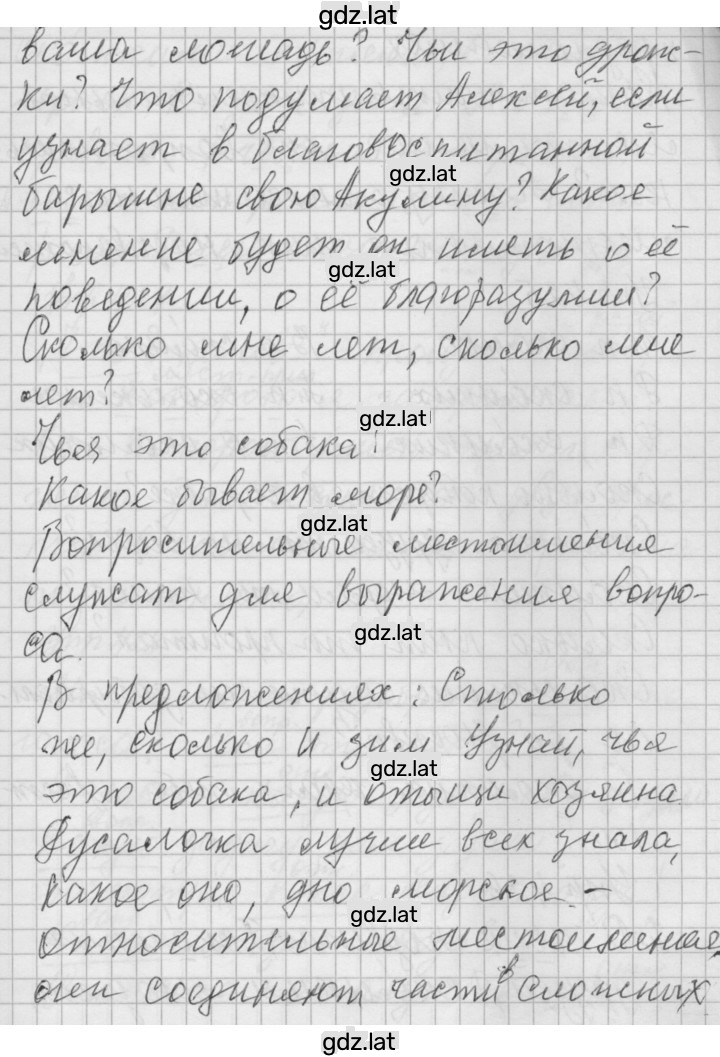 gdz.lat
ваша лошадь? Чьи это дрож-
ки? Что подумает Алексей, если
узнает в благовоспитанной
gdz.lat
барышне свою Акулину? Какое
мнение будет он иметь о её
gdz.lat
поведении, о её благоразумии?
Сколько мне лет, сколько мне
лет?
gdz.lat
Чья это собака?
Какое бывает море?
gdz.lat
Вопросительные местоимения
служат для выражения вопро-
са.
gdz.lat
В предложениях: Столько
же, сколько и зим Узнай, чья
gdz.lat
это собака, и отыщи хозяина
Русалочка лучше всех знала,
какое оно, дно морское -
gdz.lat
относительные местоимения,
они соединяют части в сложных
gdz.lat